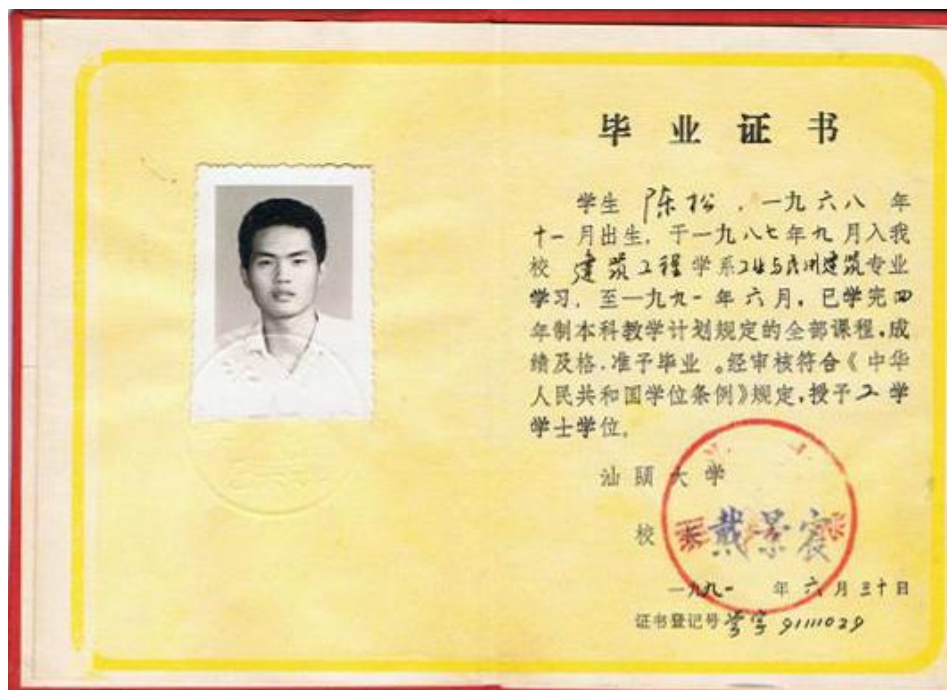 毕业证书
学生 陈松 ，一九六八 年
十一月出生，于一九八七年九月入我
校 建筑工程 学系工业与民用建筑专业
学习，至一九九一年六月，已学完四
年制本科教学计划规定的全部课程，成
绩及格，准予毕业。经审核符合《中华
人民共和国学位条例》规定，授予工学
学士学位。
汕頭大学
校 戴景宸
一九九一 年六月三十日
证书登记号 学字 9111029